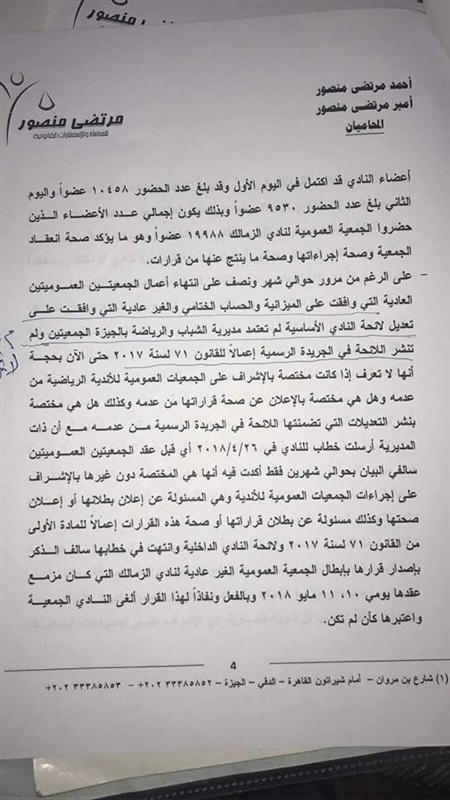 أحمد مرتضى منصور
أمير مرتضى منصور
المحاميان
مرتضى منصور
للمحاماه والإستشارات القانونية
أعضاء النادي قد اكتمل في اليوم الأول وقد بلغ عدد الحضور ١٠٤٥٨ عضواً واليوم
الثاني بلغ عدد الحضور ٩٥٣٠ عضواً وبذلك يكون إجمالي عدد الأعضاء الذين
حضروا الجمعية العمومية لنادي الزمالك ١٩٩٨٨ عضواً وهو ما يؤكد صحة انعقاد
الجمعية وصحة إجراءاتها وصحة ما ينتج عنها من قرارات.
- على الرغم من مرور حوالي شهر ونصف على انتهاء أعمال الجمعيتين العموميتين
العادية التي وافقت على الميزانية والحساب الختامي والغير عادية التي وافقت على
تعديل لائحة النادي الأساسية لم تعتمد مديرية الشباب والرياضة بالجيزة الجمعيتين ولم
تنشر اللائحة في الجريدة الرسمية إعمالاً للقانون ٧١ لسنة ٢٠١٧ حتى الآن بحجة
أنها لا تعرف إذا كانت مختصة بالإشراف على الجمعيات العمومية للأندية الرياضية من
عدمه وهل هي مختصة بالإعلان عن صحة قراراتها من عدمه وكذلك هل هي مختصة
بنشر التعديلات التي تضمنتها اللائحة في الجريدة الرسمية من عدمه مع أن ذات
المديرية أرسلت خطاب للنادي في ٢٠١٨/٤/٢٦ أي قبل عقد الجمعيتين العموميتين
سالفي البيان بحوالي شهرين فقط أكدت فيه أنها هي المختصة دون غيرها بالإشراف
على إجراءات الجمعيات العمومية للأندية وهي المسئولة عن إعلان بطلانها أو إعلان
صحتها وكذلك مسئولة عن بطلان قراراتها أو صحة هذه القرارات إعمالاً للمادة الأولى
من القانون ٧١ لسنة ٢٠١٧ ولائحة النادي الداخلية وانتهت في خطابها سالف الذكر
بإصدار قرارها بإبطال الجمعية العمومية الغير عادية لنادي الزمالك التي كان مزمع
عقدها يومي ١٠، ١١ مايو ٢٠١٨ وبالفعل ونفاذاً لهذا القرار ألغى النادي الجمعية
واعتبرها كأن لم تكن.
4
(١) شارع بن مروان – أمام شيراتون القاهرة – الدقي – الجيزة – ٣٣٣٨٥٨٥٢ ٢٠٢+ – ٣٣٣٨٥٨٥٣ ٢٠٢+